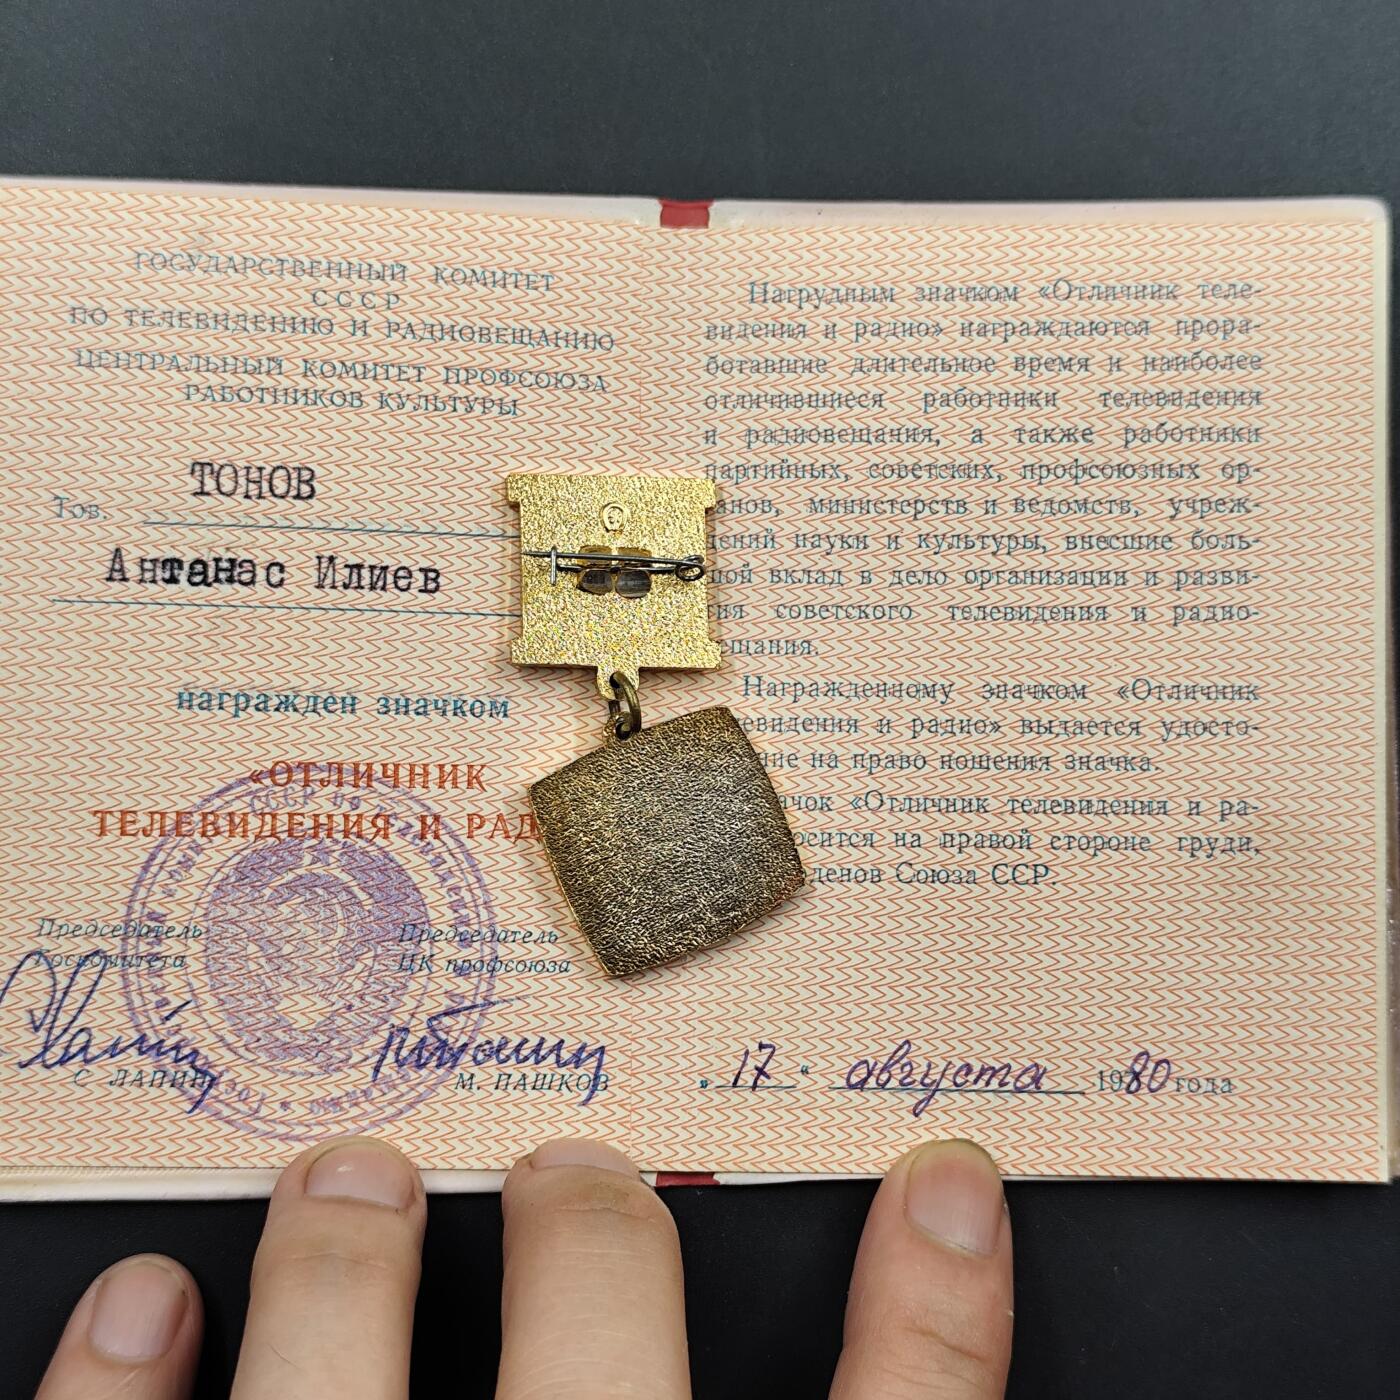 ГОСУДАРСТВЕННЫЙ КОМИТЕТ
СССР
ПО ТЕЛЕВИДЕНИЮ И РАДИОВЕЩАНИЮ
ЦЕНТРАЛЬНЫЙ КОМИТЕТ ПРОФСОЮЗА
РАБОТНИКОВ КУЛЬТУРЫ
ТОНОВ
Тов.
Антанас Илиев
награжден значком
«ОТЛИЧНИК
ТЕЛЕВИДЕНИЯ И РАД
Председатель
Госкомитета
Председатель
ЦК профсоюза
С ЛАПИН
М. ПАШКОВ
Нагрудным значком «Отличник теле-
видения и радио» награждаются прора-
ботавшие длительное время и наиболее
отличившиеся работники телевидения
и радиовещания, а также работники
партийных, советских, профсоюзных ор-
анов, министерств и ведомств, учреж-
дений науки и культуры, внесшие боль-
шой вклад в дело организации и разви-
ия советского телевидения и радио-
ещания.
Награжденному значком «Отличник
евидения и радио» выдается удосто-
ние на право ношения значка.
ачок «Отличник телевидения и ра-
осится на правой стороне груди,
денов Союза ССР.
„ 17 “ августа 1980 года